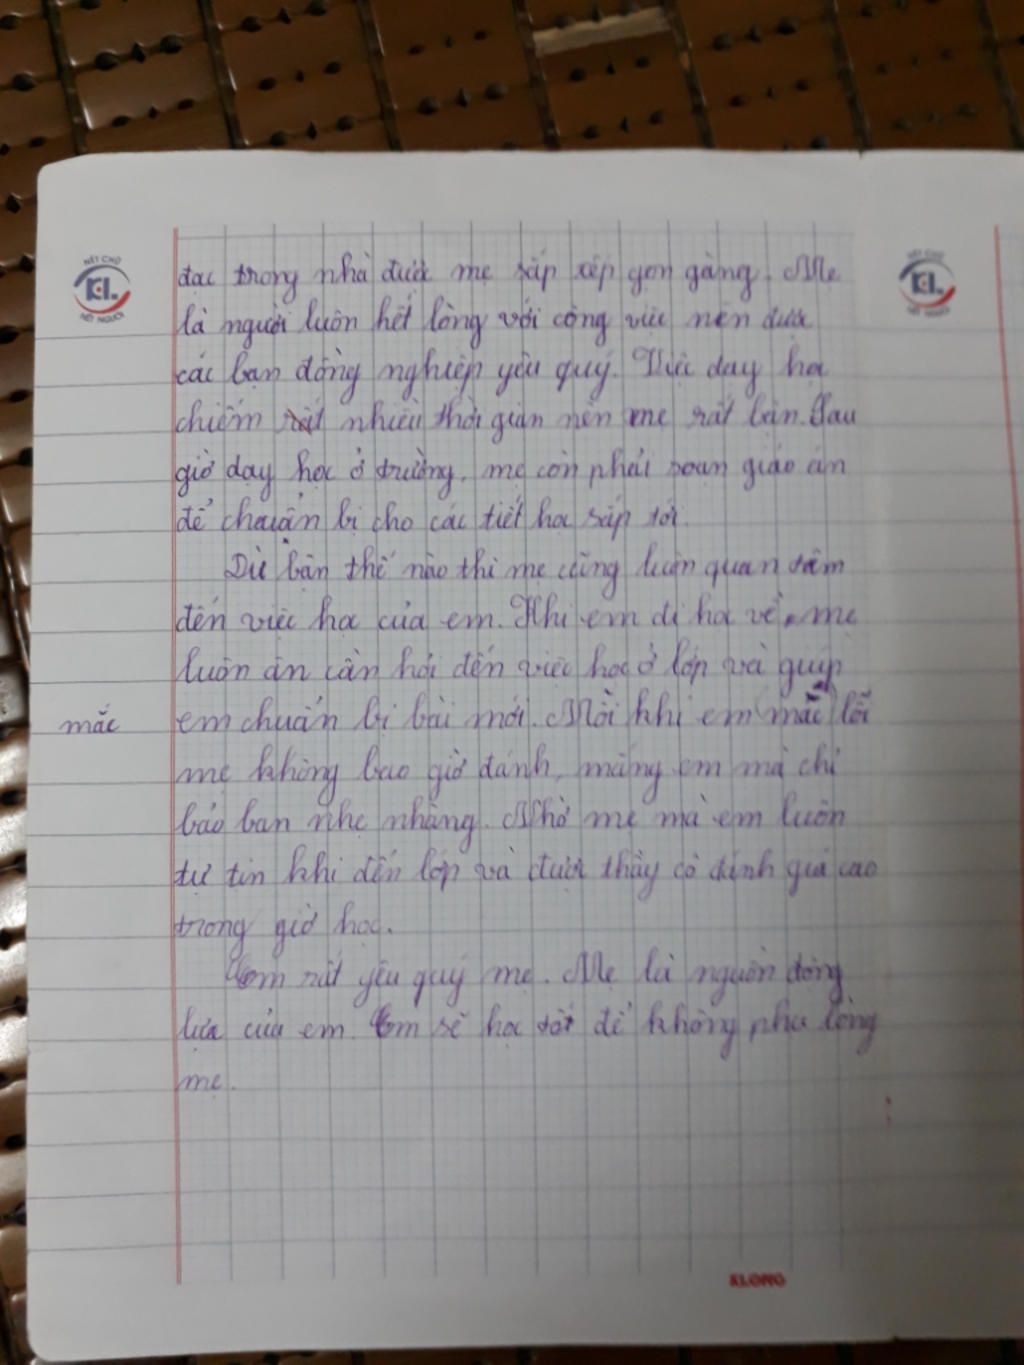 NÉT CHỮ
KL
NẾT NGƯỜI
NÉT CHỮ
KL
NẾT NGƯỜI
đạc trong nhà được mẹ sắp xếp gọn gàng. Mẹ
là người luôn hết lòng với công việc nên được
các bạn đồng nghiệp yêu quý. Việc dạy học
chiếm rất nhiều thời gian nên mẹ rất bận. Sau
giờ dạy học ở trường, mẹ còn phải soạn giáo án
để chuẩn bị cho các tiết học sắp tới.
Dù bận thế nào thì mẹ cũng luôn quan tâm
đến việc học của em. Khi em đi học về, mẹ
luôn ân cần hỏi đến việc học ở lớp và giúp
mắc
em chuẩn bị bài mới. Mỗi khi em (mắc) lỗi
mẹ không bao giờ đánh, mắng em mà chỉ
bảo ban nhẹ nhàng. Nhờ mẹ mà em luôn
tự tin khi đến lớp và được thầy cô đánh giá cao
trong giờ học.
Em rất yêu quý mẹ. Mẹ là nguồn động
lực của em. Em sẽ học tốt để không phụ lòng
mẹ.
KLONG